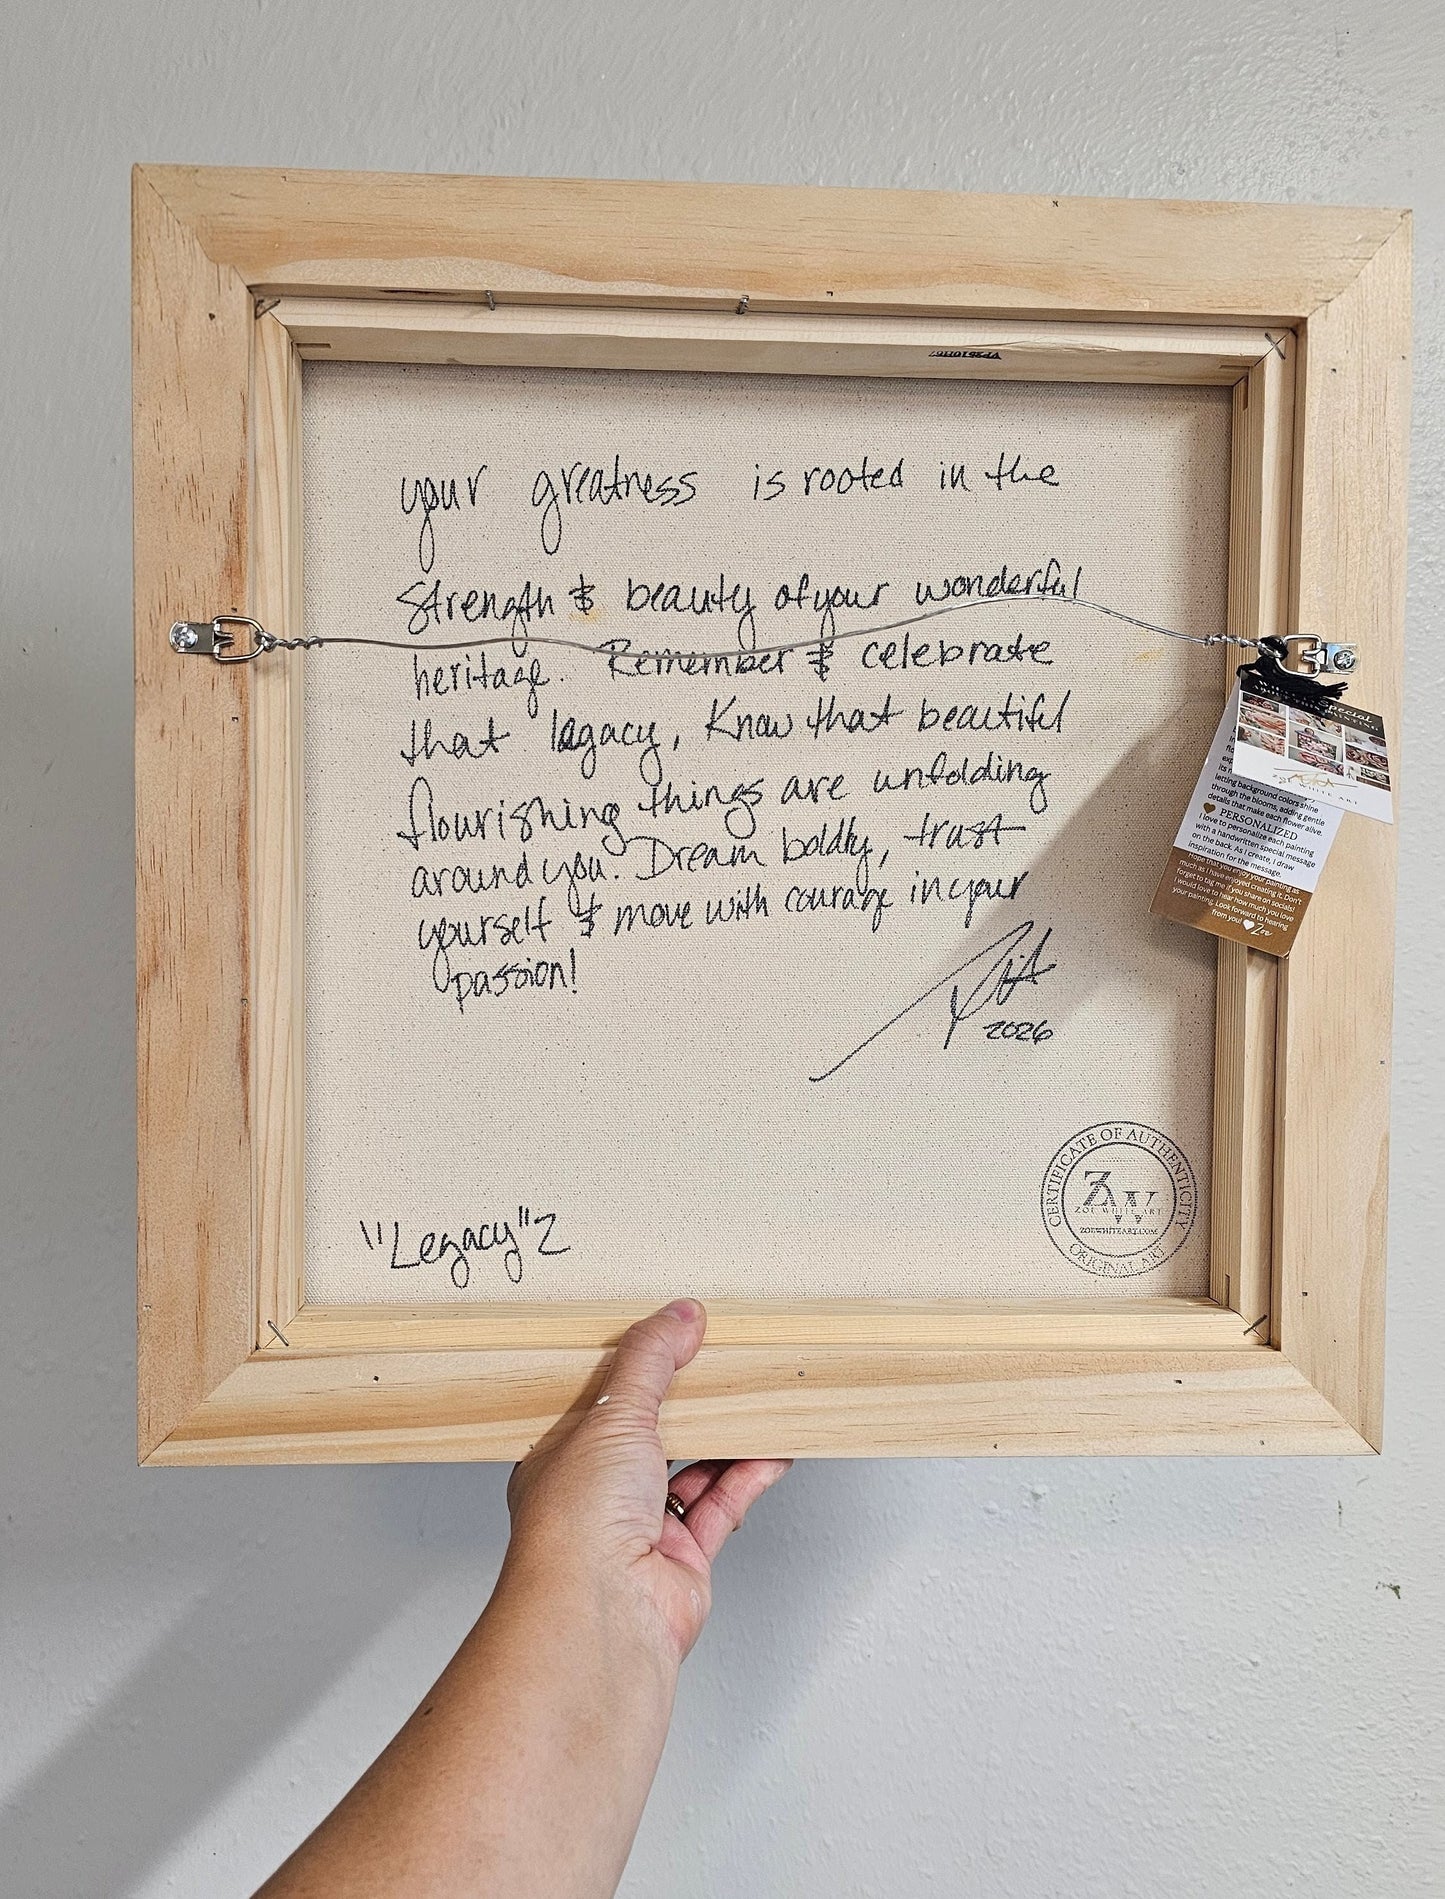 your greatness is rooted in the
strength & beauty of your wonderful
heritage. Remember & celebrate
that legacy, Know that beautiful
flourishing things are unfolding
around you. Dream boldly, trust
yourself & move with courage in your
passion!
2026
"Legacy" 2
CERTIFICATE OF AUTHENTICITY
ZW
ZOE WHITE ART
ZOEWHITEART.COM
ORIGINAL ART
Special
letting background colors shine
through the blooms, adding gentle
details that make each flower alive.
PERSONALIZED
I love to personalize each painting
with a handwritten special message
on the back. As I create, I draw
inspiration for the message.
Hope that you enjoy your painting as
much as I have enjoyed creating it. Don't
forget to tag me if you share on socials!
I would love to hear how much you love
your painting. Look forward to hearing
from you! Zoe